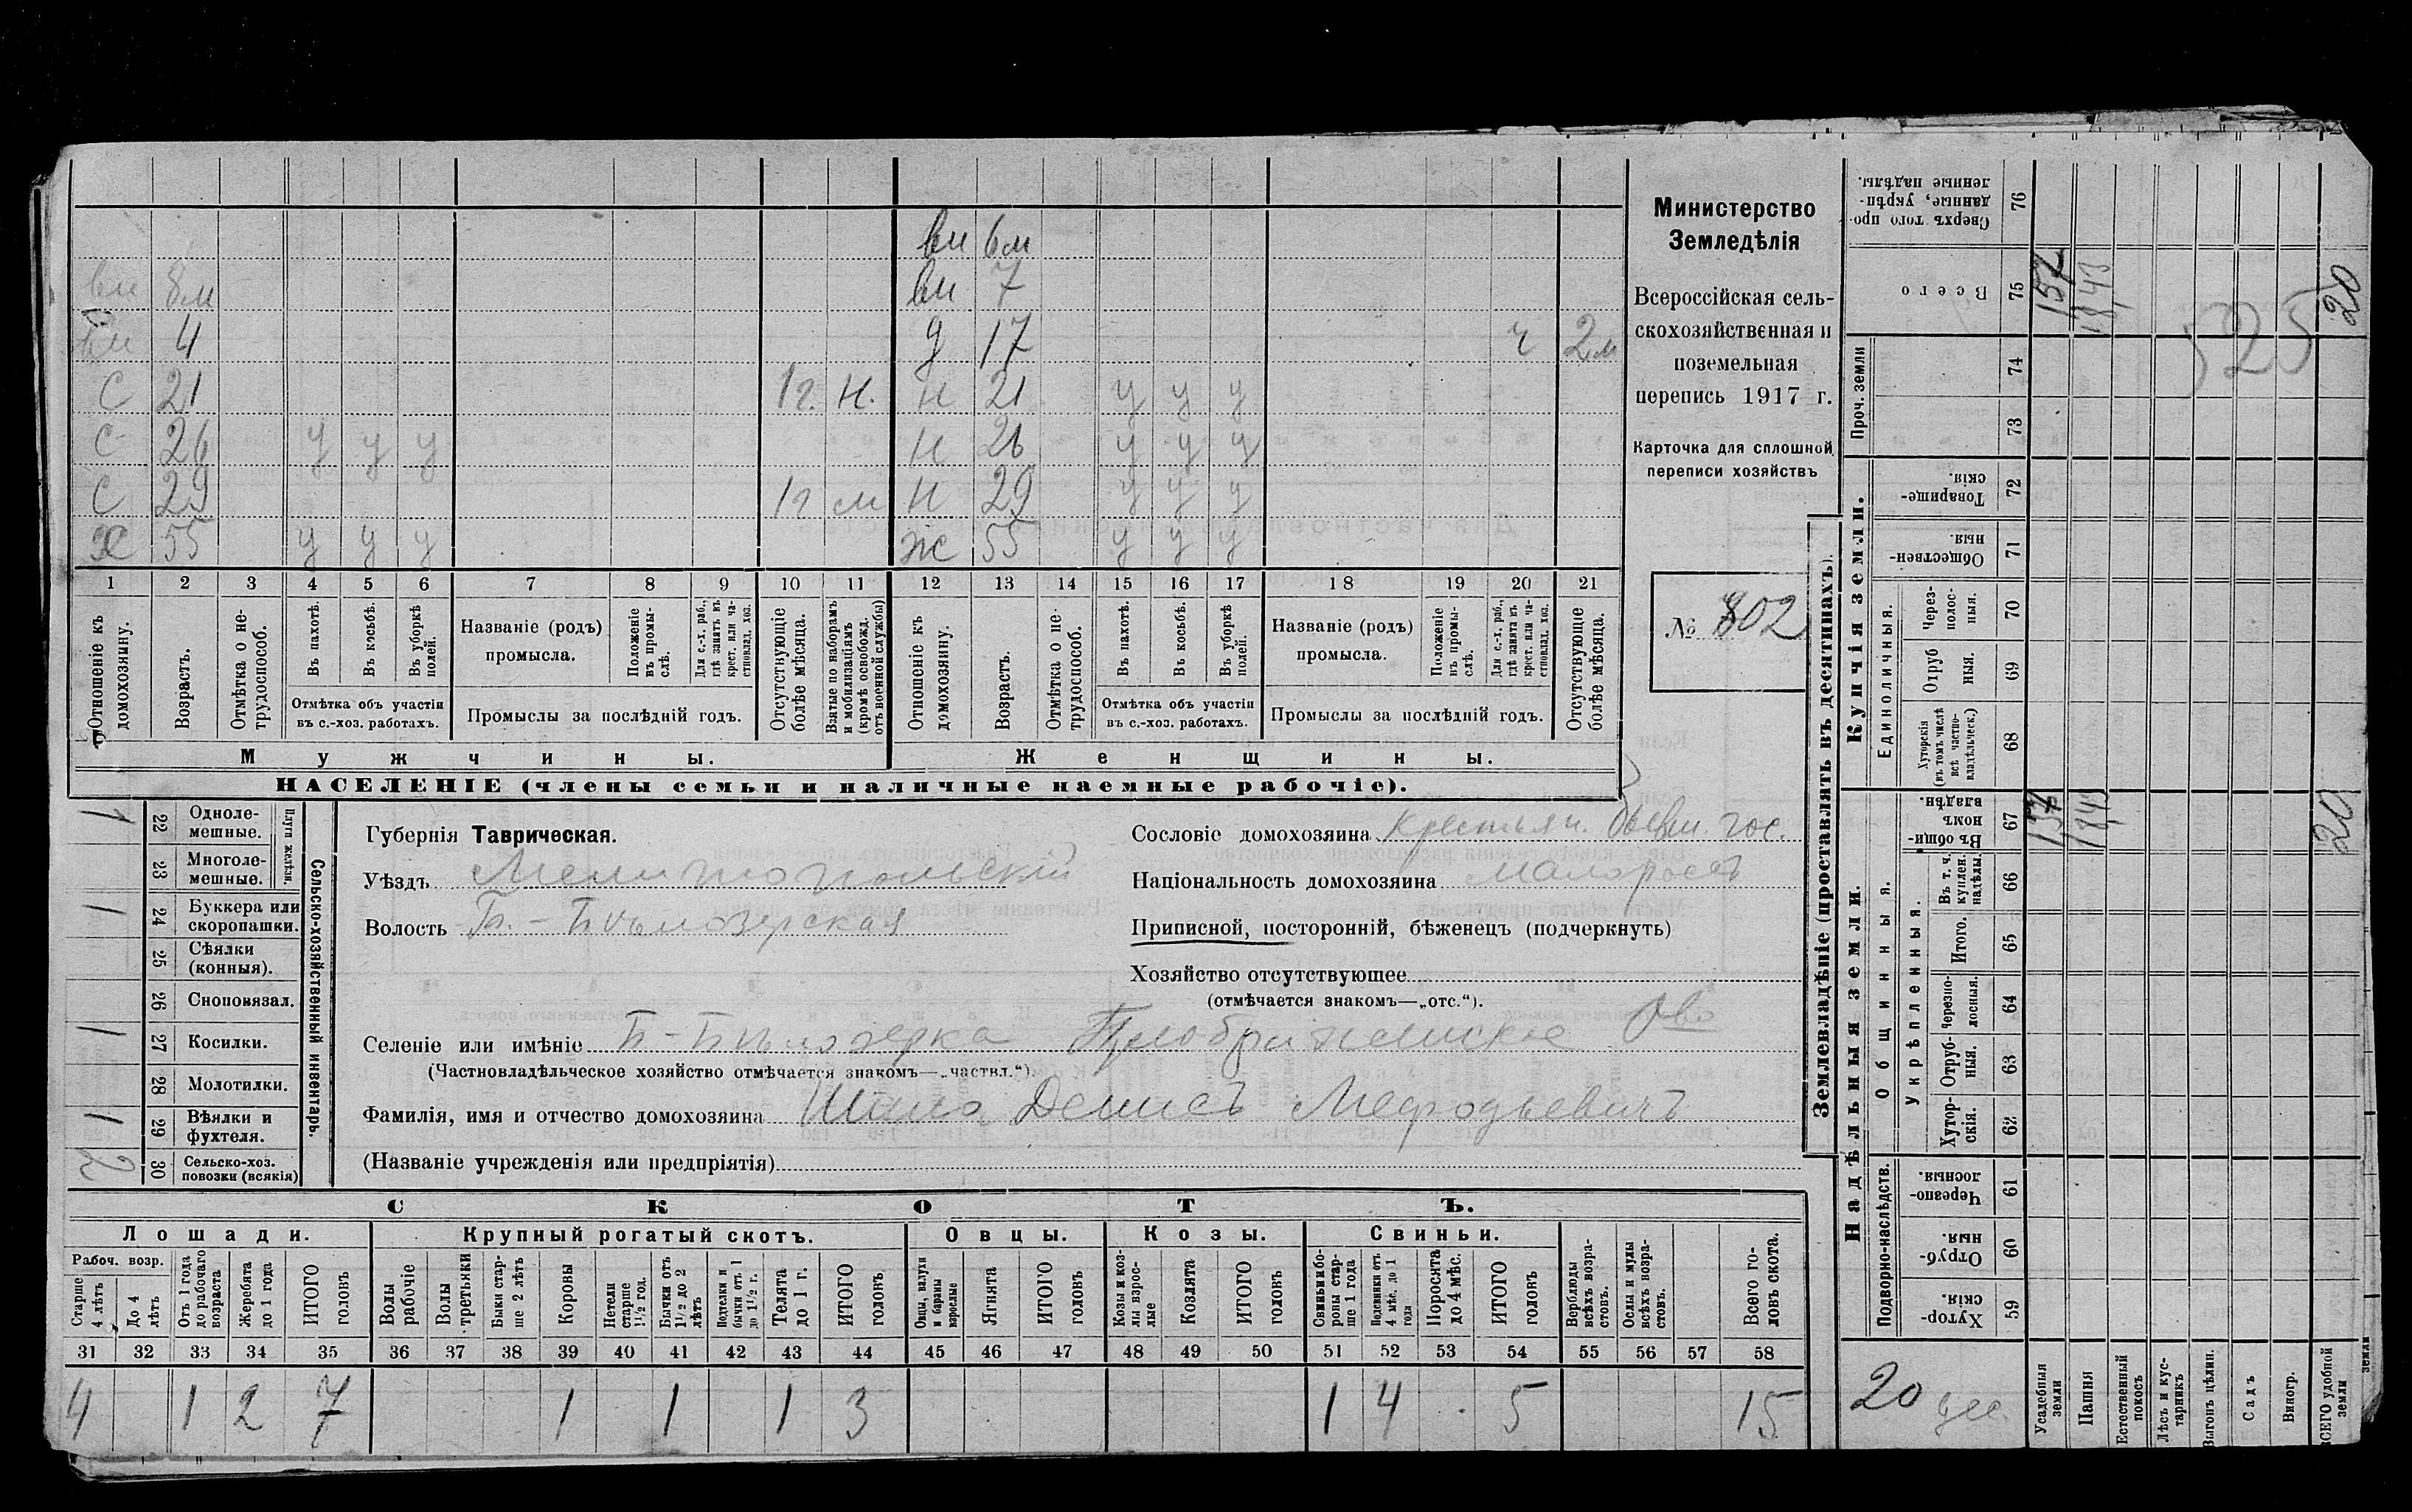 вн 6м
вн 8м вн 7
вн 4 д 17 ч 2м
С 21 1г. Н. Н 21 у у у
С 26 у у у Н 26 у у у
С 29 1г м Н 29 у у у
Х 55 у у у Ж 55 у у у
1 2 3 4 5 6 7 8 9 10 11 12 13 14 15 16 17 18 19 20 21
Отношеніе къ домохозяину.
Возрастъ.
Отмѣтка о нетрудоспособ.
Въ пахотѣ.
Въ косьбѣ.
Въ уборкѣ полей.
Отмѣтка объ участіи
въ с.-хоз. работахъ.
Названіе (родъ)
промысла.
Положеніе въ промыслѣ.
Для с.-х. раб., гдѣ занятъ въ крест. или частновлад. хоз.
Промыслы за послѣдній годъ.
Отсутствующіе болѣе мѣсяца.
Взятые по наборамъ и мобилизаціямъ (кромѣ освобожд. отъ военной службы)
Отношеніе къ домохозяину.
Возрастъ.
Отмѣтка о нетрудоспособ.
Въ пахотѣ.
Въ косьбѣ.
Въ уборкѣ полей.
Отмѣтка объ участіи
въ с.-хоз. работахъ.
Названіе (родъ)
промысла.
Положеніе въ промыслѣ.
Для с.-х. раб., гдѣ занята въ крест. или частновлад. хоз.
Промыслы за послѣдній годъ.
Отсутствующіе болѣе мѣсяца.
Мужчины. Женщины.
НАСЕЛЕНІЕ (члены семьи и наличные наемные рабочіе).
Министерство
Земледѣлія
Всероссійская сель-
скохозяйственная и
поземельная
перепись 1917 г.
Карточка для сплошной
переписи хозяйствъ
№ 802
Сельско-хозяйственный инвентарь.
Плуги желѣзн.
1 22 Одноле-
мешные.
23 Многоле-
мешные.
1 24 Буккера или
скоропашки.
25 Сѣялки
(конныя).
26 Сноповязал.
1 27 Косилки.
28 Молотилки.
1 29 Вѣялки и
фухтеля.
2 30 Сельско-хоз.
повозки (всякія)
Губернія Таврическая.
Уѣздъ Мелитопольскій
Волость Б.-Бѣлозерская
Сословіе домохозяина Крестьян. Общ. гос.
Національность домохозяина малороссъ
Приписной, посторонній, бѣженецъ (подчеркнуть)
Хозяйство отсутствующее
(отмѣчается знакомъ—„отс.“).
Селеніе или имѣніе Б-Бѣлозерка Преображенское О-во
(Частновладѣльческое хозяйство отмѣчается знакомъ—„частвл.“).
Фамилія, имя и отчество домохозяина Шило Денисъ Мефодьевичъ
(Названіе учрежденія или предпріятія)
СКОТЪ.
Лошади. Крупный рогатый скотъ. Овцы. Козы. Свиньи.
Рабоч. возр.
Старше 4 лѣтъ
До 4 лѣтъ
Отъ 1 года до рабочаго возраста
Жеребята до 1 года
ИТОГО головъ
Волы рабочіе
Волы третьяки
Быки старше 2 лѣтъ
Коровы
Нетели старше 1½ год.
Бычки отъ 1½ до 2 лѣтъ
Подтелки и бычки отъ 1 до 1½ г.
Телята до 1 г.
ИТОГО головъ
Овцы, валухи и бараны взрослые
Ягнята
ИТОГО головъ
Козы и козлы взрослые
Козлята
ИТОГО головъ
Свиньи и боровы старше 1 года
Подсвинки отъ 4 мѣс. до 1 года
Поросята до 4 мѣс.
ИТОГО головъ
Верблюды всѣхъ возрастовъ.
Ослы и мулы всѣхъ возрастовъ.
Всего головъ скота.
31 32 33 34 35 36 37 38 39 40 41 42 43 44 45 46 47 48 49 50 51 52 53 54 55 56 57 58
4 1 2 7 1 1 1 3 1 4 5 15
Землевладѣніе (проставлять въ десятинахъ).
Купчія земли.
Надѣльныя земли.
Сверхъ того проданные, укрѣпленные надѣлы. 76
Всего 75
Проч. земли
74
73
Товарищескія. 72
Общественныя. 71
Единоличныя.
Черезполосныя. 70
Отрубныя. 69
Хуторскія (въ томъ числѣ всѣ частновладѣльческ.) 68
Общинныя.
Въ общинномъ владѣн. 67
Укрѣпленныя.
Въ т. ч. куплен. надѣлы. 66
Итого. 65
Черезполосныя. 64
Отрубныя. 63
Хуторскія. 62
Подворно-наслѣдств.
Черезполосныя 61
Отрубныя. 60
Хуторскія. 59
157 1843 525 20
157 1843 20
20 дес.
Усадебныя земли
Пашня
Естественный покосъ
Лѣсъ и кустарникъ
Выгонъ цѣлин.
Садъ
Виногр.
ВСЕГО удобной земли
земли